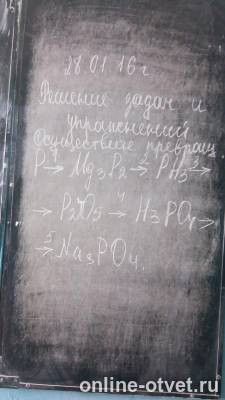 28.01.16 г
Решение задач и
упражнений
Осуществите превращ.
P 1→ Mg3P2 2→ PH3 3→
→ P2O5 4→ H3PO4 →
5→ Na3PO4.
online-otvet.ru